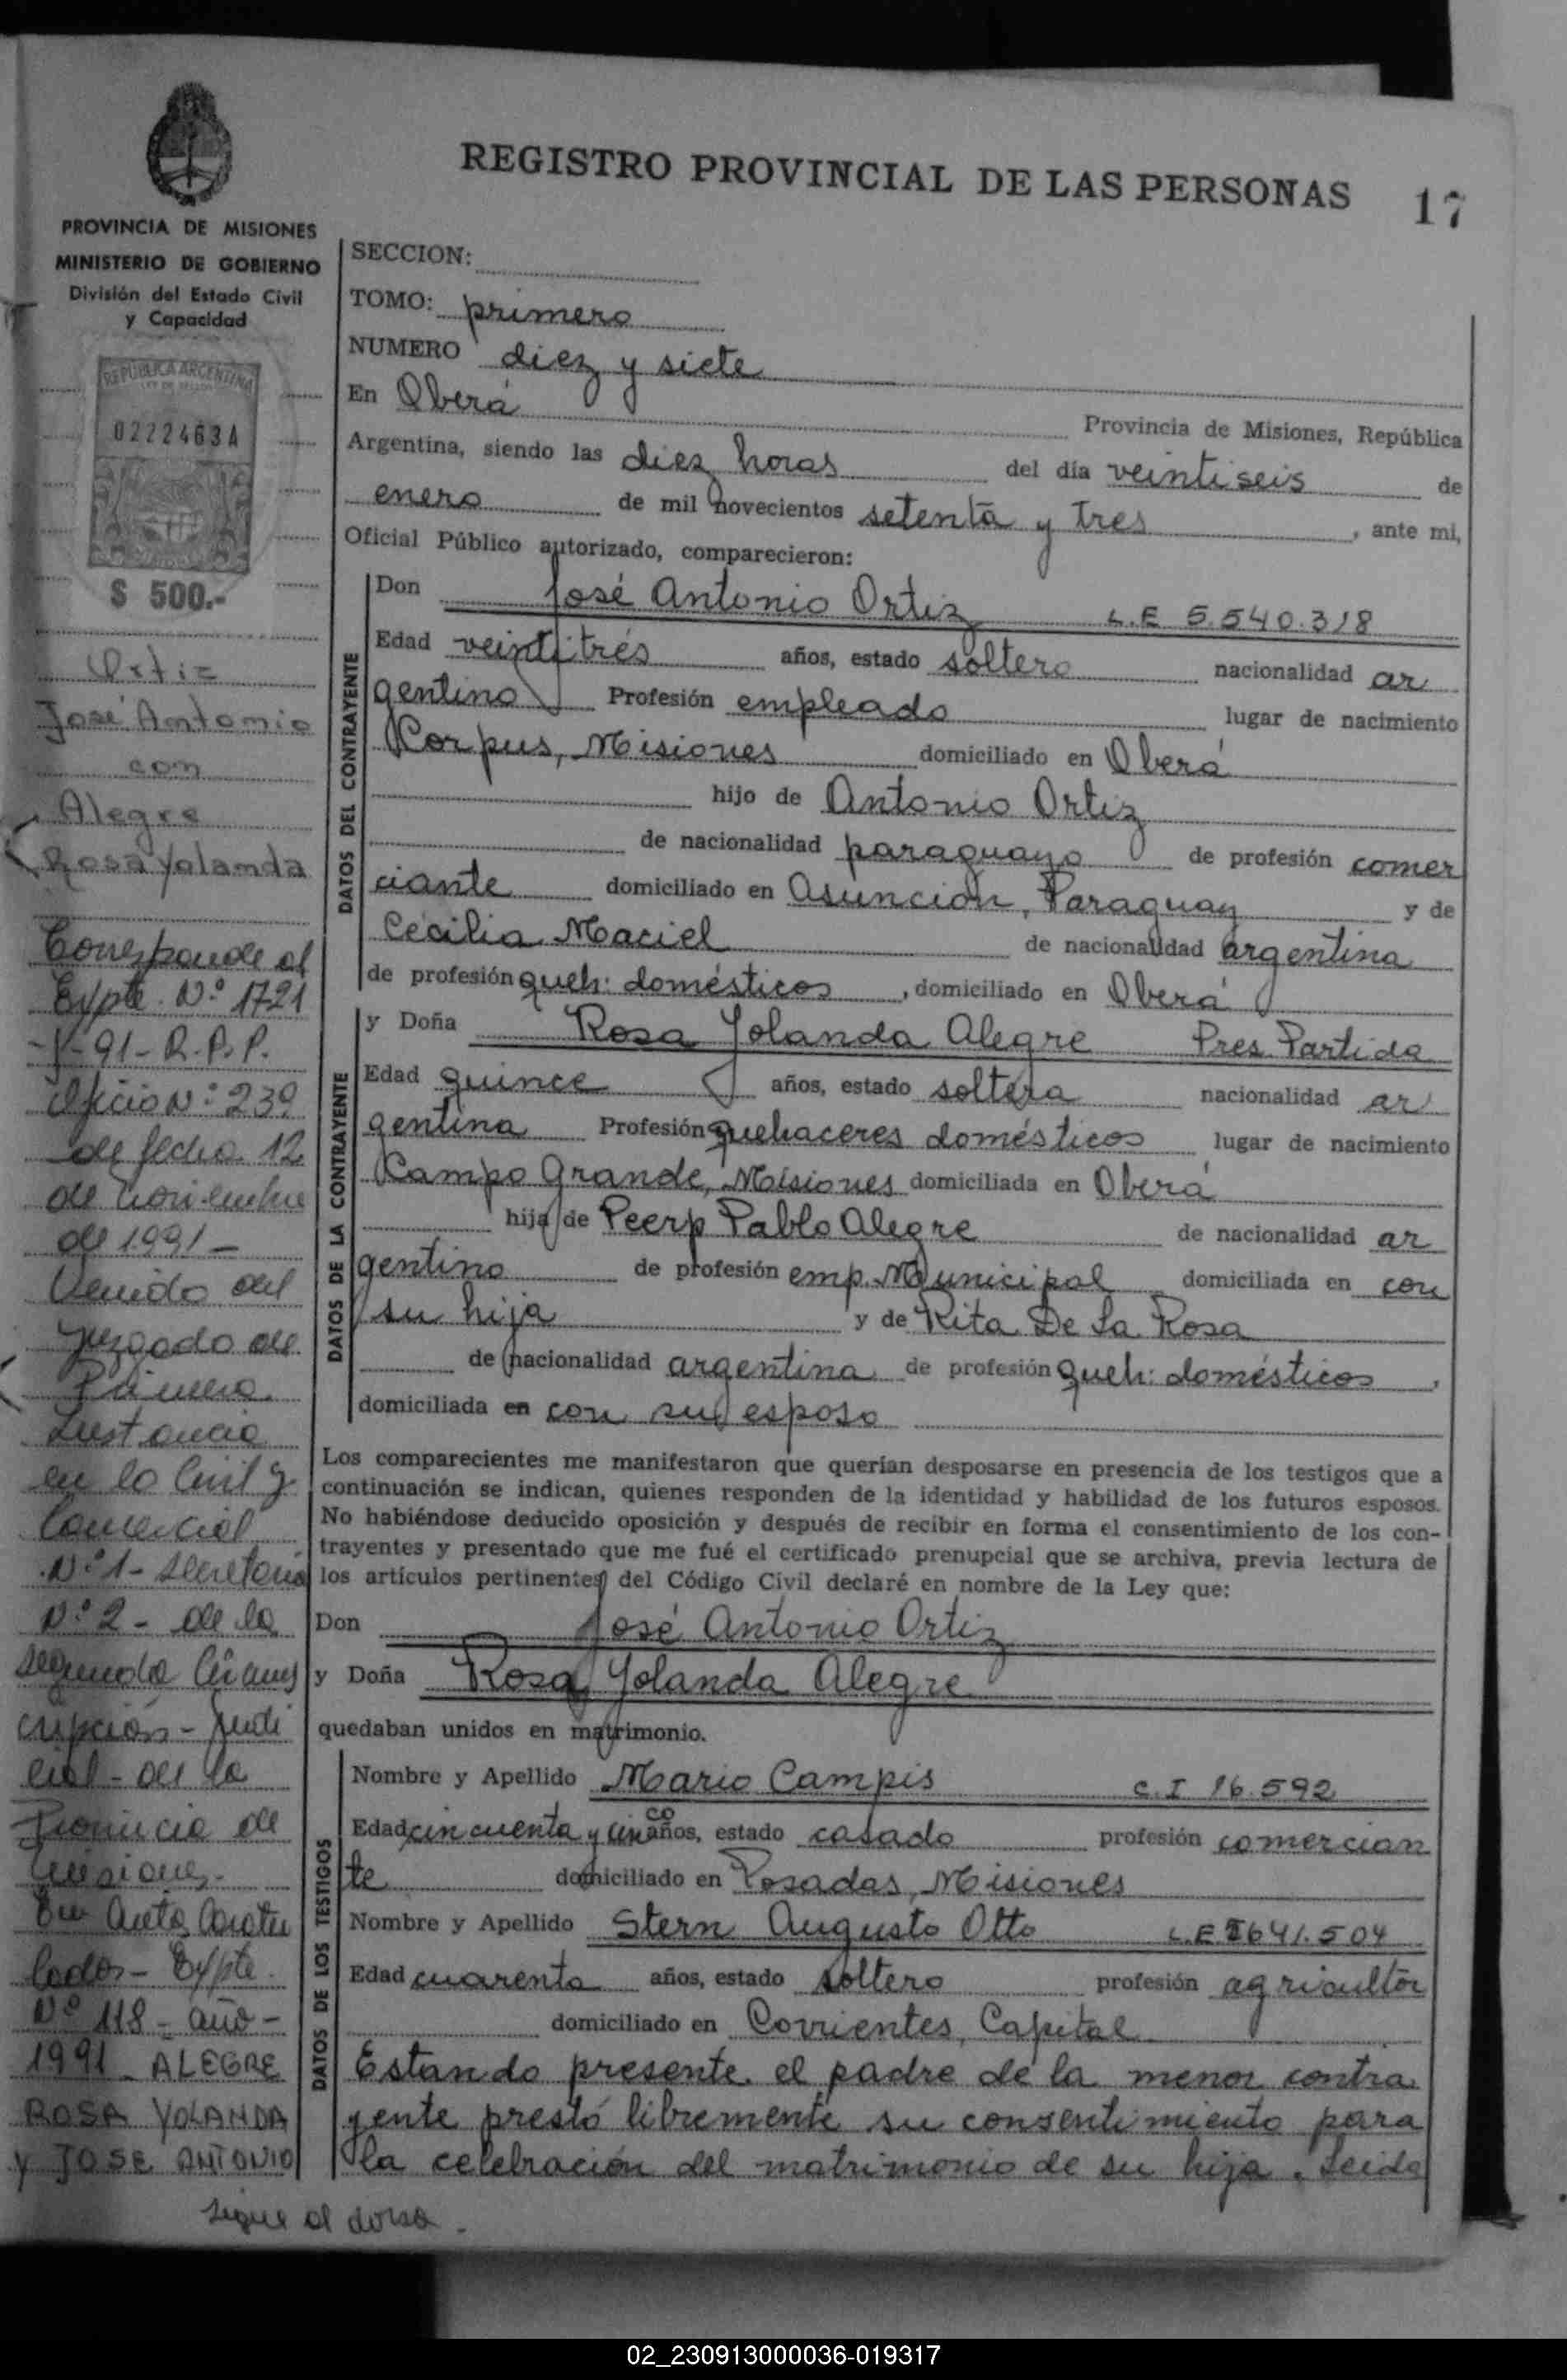 REGISTRO PROVINCIAL DE LAS PERSONAS 17
PROVINCIA DE MISIONES
MINISTERIO DE GOBIERNO
División del Estado Civil
y Capacidad
REPUBLICA ARGENTINA
0222463A
$ 500.-
Ortiz
José Antonio
con
Alegre
Rosa Yolanda
Corresponde al
Expte. N.º 1721
91- R.P.P.
Oficio N.º 239
de fecha 12
de noviembre
de 1991-
Venido del
Juzgado de
Primera
Instancia
en lo Civil y
Comercial
N.º 1- Secretaria
N.º 2- de la
segunda Circuns
cripción- Judi
cial- de la
Provincia de
Misiones-
En Autos Caratu
lados- Expte.
Nº 118- año-
1991- ALEGRE
ROSA YOLANDA
y JOSE ANTONIO
sigue al dorso.
SECCION:
TOMO: primero
NUMERO diez y siete
En Oberá Provincia de Misiones, República
Argentina, siendo las diez horas del día veintiseis de
enero de mil novecientos setenta y tres, ante mi,
Oficial Público autorizado, comparecieron:
DATOS DEL CONTRAYENTE
Don José Antonio Ortiz L.E 5.540.318
Edad veintitrés años, estado soltero nacionalidad ar
gentino Profesión empleado lugar de nacimiento
Corpus, Misiones domiciliado en Oberá
hijo de Antonio Ortiz
de nacionalidad paraguayo de profesión comer
ciante domiciliado en Asunción, Paraguay y de
Cecilia Maciel de nacionalidad argentina
de profesión queh: domésticos, domiciliado en Oberá
DATOS DE LA CONTRAYENTE
y Doña Rosa Yolanda Alegre Pres. Partida
Edad quince años, estado soltera nacionalidad ar
gentina Profesión quehaceres domésticos lugar de nacimiento
Campo Grande, Misiones domiciliada en Oberá
hija de Pablo Alegre de nacionalidad ar
gentino de profesión emp. Municipal domiciliada en con
su hija y de Rita De La Rosa
de nacionalidad argentina de profesión queh: domésticos,
domiciliada en con su esposo
Los comparecientes me manifestaron que querían desposarse en presencia de los testigos que a
continuación se indican, quienes responden de la identidad y habilidad de los futuros esposos.
No habiéndose deducido oposición y después de recibir en forma el consentimiento de los con-
trayentes y presentado que me fué el certificado prenupcial que se archiva, previa lectura de
los artículos pertinentes del Código Civil declaré en nombre de la Ley que:
Don José Antonio Ortiz
y Doña Rosa Yolanda Alegre
quedaban unidos en matrimonio.
DATOS DE LOS TESTIGOS
Nombre y Apellido Mario Campis C.I 16.592
Edad cincuenta y cinco años, estado casado profesión comercian
te domiciliado en Posadas, Misiones
Nombre y Apellido Stern Augusto Otto L.E 641.504
Edad cuarenta años, estado soltero profesión agricultor
domiciliado en Corrientes, Capital
Estando presente el padre de la menor contra
yente prestó libremente su consentimiento para
la celebración del matrimonio de su hija. Leida
02_230913000036-019317